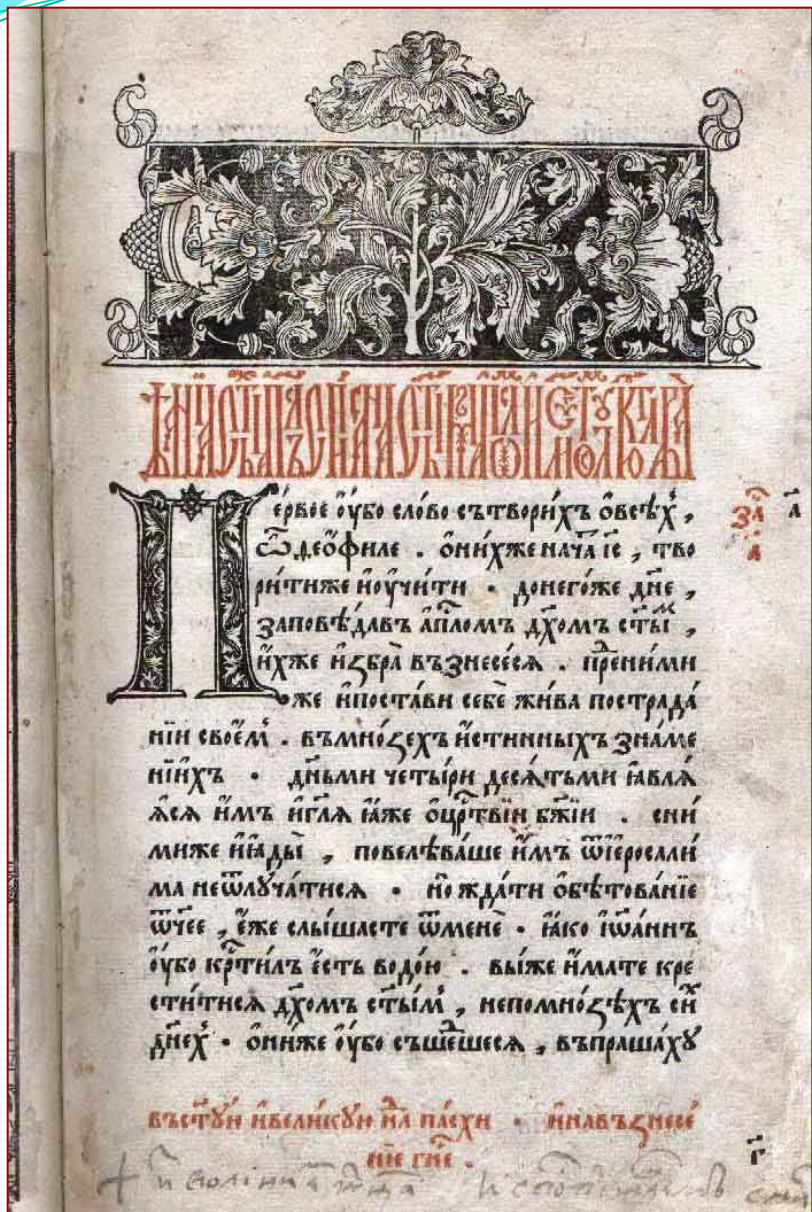 Пе́рвое ᲂу҆́бо сло́во сътвори́хъ ѻ҆всѣ́хꙿ,
Ѽ део́филе . ѻ҆ни́хже нача̀ і҆с҃ , тво
ри́тиже и҆ᲂу҆чи́ти · донего́же дн҃е ,
заповѣ́давъ а҆пⷭ҇ломъ дх҃омъ ст҃ыⷨ ,
и҆́хже и҆збра̀ възнесе́ся . преⷣни́ми
же и҆поста́ви себѐ жи́ва пострада́
нїи свое́мꙿ . въмно́ѕехъ и҆́стинныхъ зна́ме
нїихъ · дн҃ьми четы́ри десѧ́тьми ꙗ҆влѧ́
ѧ҆сѧ и҆̀мъ и҆гл҃ѧ ꙗ҆́же ѻ҆црⷭ҇твїи бж҃їи . сни́
миже и҆ꙗ҆ды̀ , повелѣва́ше и҆̀мъ ѿі҆еросали́
ма неѿлꙋча́тисѧ · но жда́ти ѻ҆бѣтова́нїе
ѿч҃ее , е҆́же слы́шасте ѿменѐ · ꙗ҆́ко і҆ѡ҆а́ннъ
ᲂу҆́бо крⷭ҇ти́лъ є҆́сть водо́ю . вы́же и҆́мате кре
сти́тисѧ дх҃омъ ст҃ы́мꙿ , непомно́ѕѣхъ си́х
дн҃ехꙿ · ѻ҆ни́же ᲂу҆́бо съше́дшесѧ , въпраша́хꙋ
въст҃ꙋю и҆вели́кꙋю нⷣлѧ па́схи · и҆навъѕнесе́
нїе гн҃е .
за҃
а҃
а҃
г҃